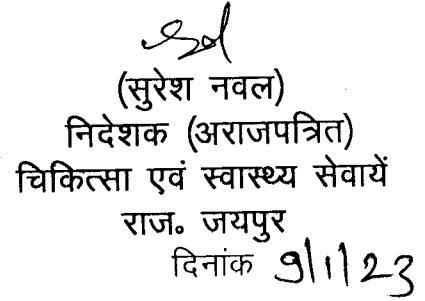 (सुरेश नवल)
निदेशक (अराजपत्रित)
चिकित्सा एवं स्वास्थ्य सेवायें
राज॰ जयपुर
दिनांक 9/1/23